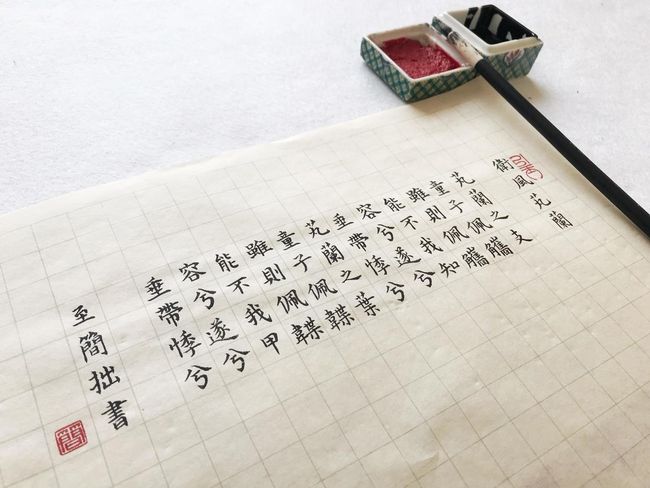 衛風 芄蘭
芄蘭之支
童子佩觿
雖則佩觿
能不我知
容兮遂兮
垂帶悸兮
芄蘭之葉
童子佩韘
雖則佩韘
能不我甲
容兮遂兮
垂帶悸兮
至簡拙書